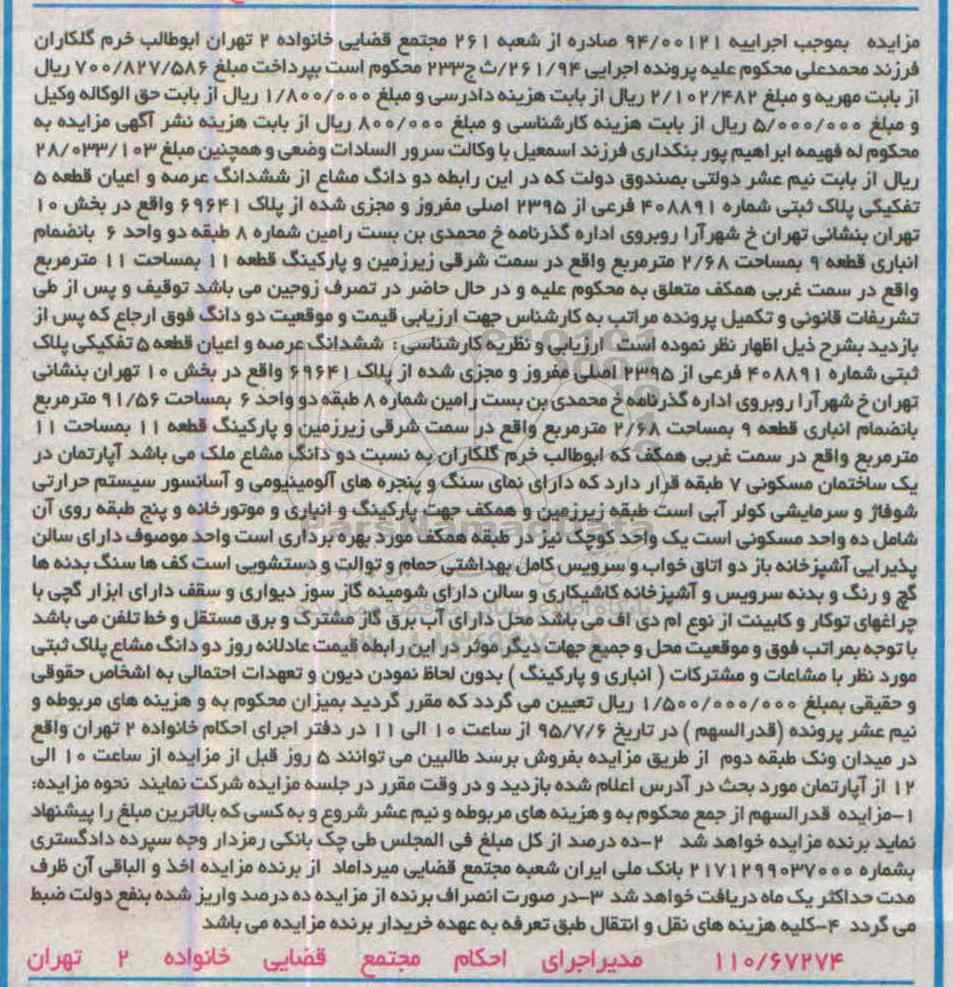 مزایده بموجب اجراییه ۹۴/۰۰۱۲۱ صادره از شعبه ۲۶۱ مجتمع قضایی خانواده ۲ تهران ابوطالب خرم گلکاران
فرزند محمدعلی محکوم علیه پرونده اجرایی ۲۶۱/۹۴/ث ج۲۳۳ محکوم است بپرداخت مبلغ ۷۰۰/۸۲۷/۵۸۶ ریال
از بابت مهریه و مبلغ ۲/۱۰۲/۴۸۲ ریال از بابت هزینه دادرسی و مبلغ ۱/۸۰۰/۰۰۰ ریال از بابت حق الوکاله وکیل
و مبلغ ۵/۰۰۰/۰۰۰ ریال از بابت هزینه کارشناسی و مبلغ ۸۰۰/۰۰۰ ریال از بابت هزینه نشر آگهی مزایده به
محکوم له فهیمه ابراهیم پور بنکداری فرزند اسمعیل با وکالت سرور السادات وضعی و همچنین مبلغ ۲۸/۰۳۳/۱۰۳
ریال از بابت نیم عشر دولتی بصندوق دولت که در این رابطه دو دانگ مشاع از ششدانگ عرصه و اعیان قطعه ۵
تفکیکی پلاک ثبتی شماره ۴۰۸۸۹۱ فرعی از ۲۳۹۵ اصلی مفروز و مجزی شده از پلاک ۶۹۶۴۱ واقع در بخش ۱۰
تهران بنشانی تهران خ شهرآرا روبروی اداره گذرنامه خ محمدی بن بست رامین شماره ۸ طبقه دو واحد ۶ بانضمام
انباری قطعه ۹ بمساحت ۲/۶۸ مترمربع واقع در سمت شرقی زیرزمین و پارکینگ قطعه ۱۱ بمساحت ۱۱ مترمربع
واقع در سمت غربی همکف متعلق به محکوم علیه و در حال حاضر در تصرف زوجین می باشد توقیف و پس از طی
تشریفات قانونی و تکمیل پرونده مراتب به کارشناس جهت ارزیابی قیمت و موقعیت دو دانگ فوق ارجاع که پس از
بازدید بشرح ذیل اظهار نظر نموده است ارزیابی و نظریه کارشناسی : ششدانگ عرصه و اعیان قطعه ۵ تفکیکی پلاک
ثبتی شماره ۴۰۸۸۹۱ فرعی از ۲۳۹۵ اصلی مفروز و مجزی شده از پلاک ۶۹۶۴۱ واقع در بخش ۱۰ تهران بنشانی
تهران خ شهرآرا روبروی اداره گذرنامه خ محمدی بن بست رامین شماره ۸ طبقه دو واحد ۶ بمساحت ۹۱/۵۶ مترمربع
بانضمام انباری قطعه ۹ بمساحت ۲/۶۸ مترمربع واقع در سمت شرقی زیرزمین و پارکینگ قطعه ۱۱ بمساحت ۱۱
مترمربع واقع در سمت غربی همکف که ابوطالب خرم گلکاران به نسبت دو دانگ مشاع ملک می باشد آپارتمان در
یک ساختمان مسکونی ۷ طبقه قرار دارد که دارای نمای سنگ و پنجره های آلومینیومی و آسانسور سیستم حرارتی
شوفاژ و سرمایشی کولر آبی است طبقه زیرزمین و همکف جهت پارکینگ و انباری و موتورخانه و پنج طبقه روی آن
شامل ده واحد مسکونی است یک واحد کوچک نیز در طبقه همکف مورد بهره برداری است واحد موصوف دارای سالن
پذیرایی آشپزخانه باز دو اتاق خواب و سرویس کامل بهداشتی حمام و توالت و دستشویی است کف ها سنگ بدنه ها
گچ و رنگ و بدنه سرویس و آشپزخانه کاشیکاری و سالن دارای شومینه گاز سوز دیواری و سقف دارای ابزار گچی با
چراغهای توکار و کابینت از نوع ام دی اف می باشد محل دارای آب برق گاز مشترک و برق مستقل و خط تلفن می باشد
با توجه بمراتب فوق و موقعیت محل و جمیع جهات دیگر موثر در این رابطه قیمت عادلانه روز دو دانگ مشاع پلاک ثبتی
مورد نظر با مشاعات و مشترکات ( انباری و پارکینگ ) بدون لحاظ نمودن دیون و تعهدات احتمالی به اشخاص حقوقی
و حقیقی بمبلغ ۱/۵۰۰/۰۰۰/۰۰۰ ریال تعیین می گردد که مقرر گردید بمیزان محکوم به و هزینه های مربوطه و
نیم عشر پرونده (قدرالسهم ) در تاریخ ۹۵/۷/۶ از ساعت ۱۰ الی ۱۱ در دفتر اجرای احکام خانواده ۲ تهران واقع
در میدان ونک طبقه دوم از طریق مزایده بفروش برسد طالبین می توانند ۵ روز قبل از مزایده از ساعت ۱۰ الی
۱۲ از آپارتمان مورد بحث در آدرس اعلام شده بازدید و در وقت مقرر در جلسه مزایده شرکت نمایند نحوه مزایده:
۱-مزایده قدرالسهم از جمع محکوم به و هزینه های مربوطه و نیم عشر شروع و به کسی که بالاترین مبلغ را پیشنهاد
نماید برنده مزایده خواهد شد ۲-ده درصد از کل مبلغ فی المجلس طی چک بانکی رمزدار وجه سپرده دادگستری
بشماره ۲۱۷۱۲۹۹۰۳۷۰۰۰ بانک ملی ایران شعبه مجتمع قضایی میرداماد از برنده مزایده اخذ و الباقی آن ظرف
مدت حداکثر یک ماه دریافت خواهد شد ۳-در صورت انصراف برنده از مزایده ده درصد واریز شده بنفع دولت ضبط
می گردد ۴-کلیه هزینه های نقل و انتقال طبق تعرفه به عهده خریدار برنده مزایده می باشد
۱۱۰/۶۷۲۷۴ مدیراجرای احکام مجتمع قضایی خانواده ۲ تهران
ParsNamadData